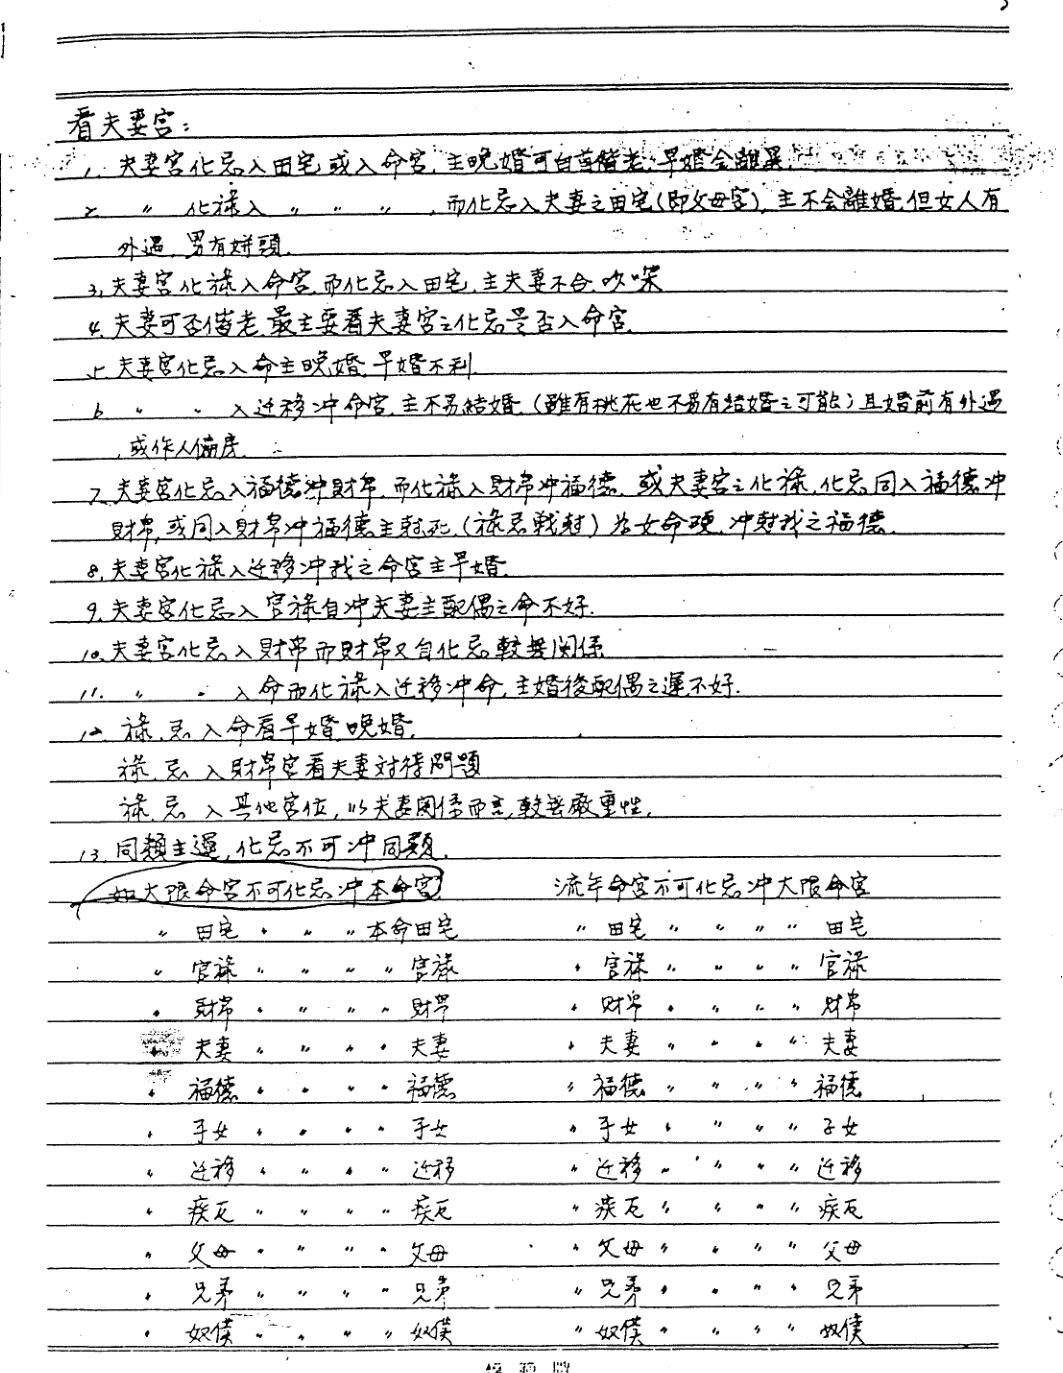 看夫妻宮：
1. 夫妻宮化忌入田宅或入命宮,主晚婚可白首偕老,早婚會離異.
2 〃 化祿入 〃 〃 〃 ,而化忌入夫妻之田宅(即父母宮),主不會離婚.但女人有
外遇,男有姘頭.
3,夫妻宮化祿入命宮,而化忌入田宅,主夫妻不合.吵
4.夫妻可否偕老,最主要看夫妻宮之化忌是否入命宮.
5.夫妻宮化忌入命主晚婚,早婚不利.
6 〃 〃 入迁移冲命宮,主不易結婚.(雖有桃花也不易有結婚之可能)且婚前有外遇
,或作人偏房.
7.夫妻宮化忌入福德冲財帛,而化祿入財帛冲福德,或夫妻宮之化祿,化忌同入福德冲
財帛,或同入財帛冲福德主尅死.(祿忌戰尅)为女命硬.冲尅我之福德.
8.夫妻宮化祿入迁移冲我之命宮主早婚.
9.夫妻宮化忌入官祿自冲夫妻主配偶之命不好.
10.夫妻宮化忌入財帛而財帛又自化忌.較無関係
11. 〃 〃 入命而化祿入迁移冲命,主婚後配偶之運不好.
12.祿.忌入命看早婚.晚婚.
祿.忌入財帛宮看夫妻対待問題
祿.忌入其他宮位,以夫妻関係而言,較無嚴重性.
13.同類主運,化忌不可冲同類.
如大限命宮不可化忌冲本命宮 流年命宮不可化忌冲大限命宮
〃 田宅 〃 〃 〃 本命田宅 〃 田宅 〃 〃 〃 〃 田宅
〃 官祿 〃 〃 〃 〃 官祿 〃 官祿 〃 〃 〃 〃 官祿
〃 財帛 〃 〃 〃 〃 財帛 〃 財帛 〃 〃 〃 〃 財帛
〃 夫妻 〃 〃 〃 〃 夫妻 〃 夫妻 〃 〃 〃 〃 夫妻
〃 福德 〃 〃 〃 〃 福德 〃 福德 〃 〃 〃 〃 福德
〃 子女 〃 〃 〃 〃 子女 〃 子女 〃 〃 〃 〃 子女
〃 迁移 〃 〃 〃 〃 迁移 〃 迁移 〃 〃 〃 〃 迁移
〃 疾厄 〃 〃 〃 〃 疾厄 〃 疾厄 〃 〃 〃 〃 疾厄
〃 父母 〃 〃 〃 〃 父母 〃 父母 〃 〃 〃 〃 父母
〃 兄弟 〃 〃 〃 〃 兄弟 〃 兄弟 〃 〃 〃 〃 兄弟
〃 奴僕 〃 〃 〃 〃 奴僕 〃 奴僕 〃 〃 〃 〃 奴僕